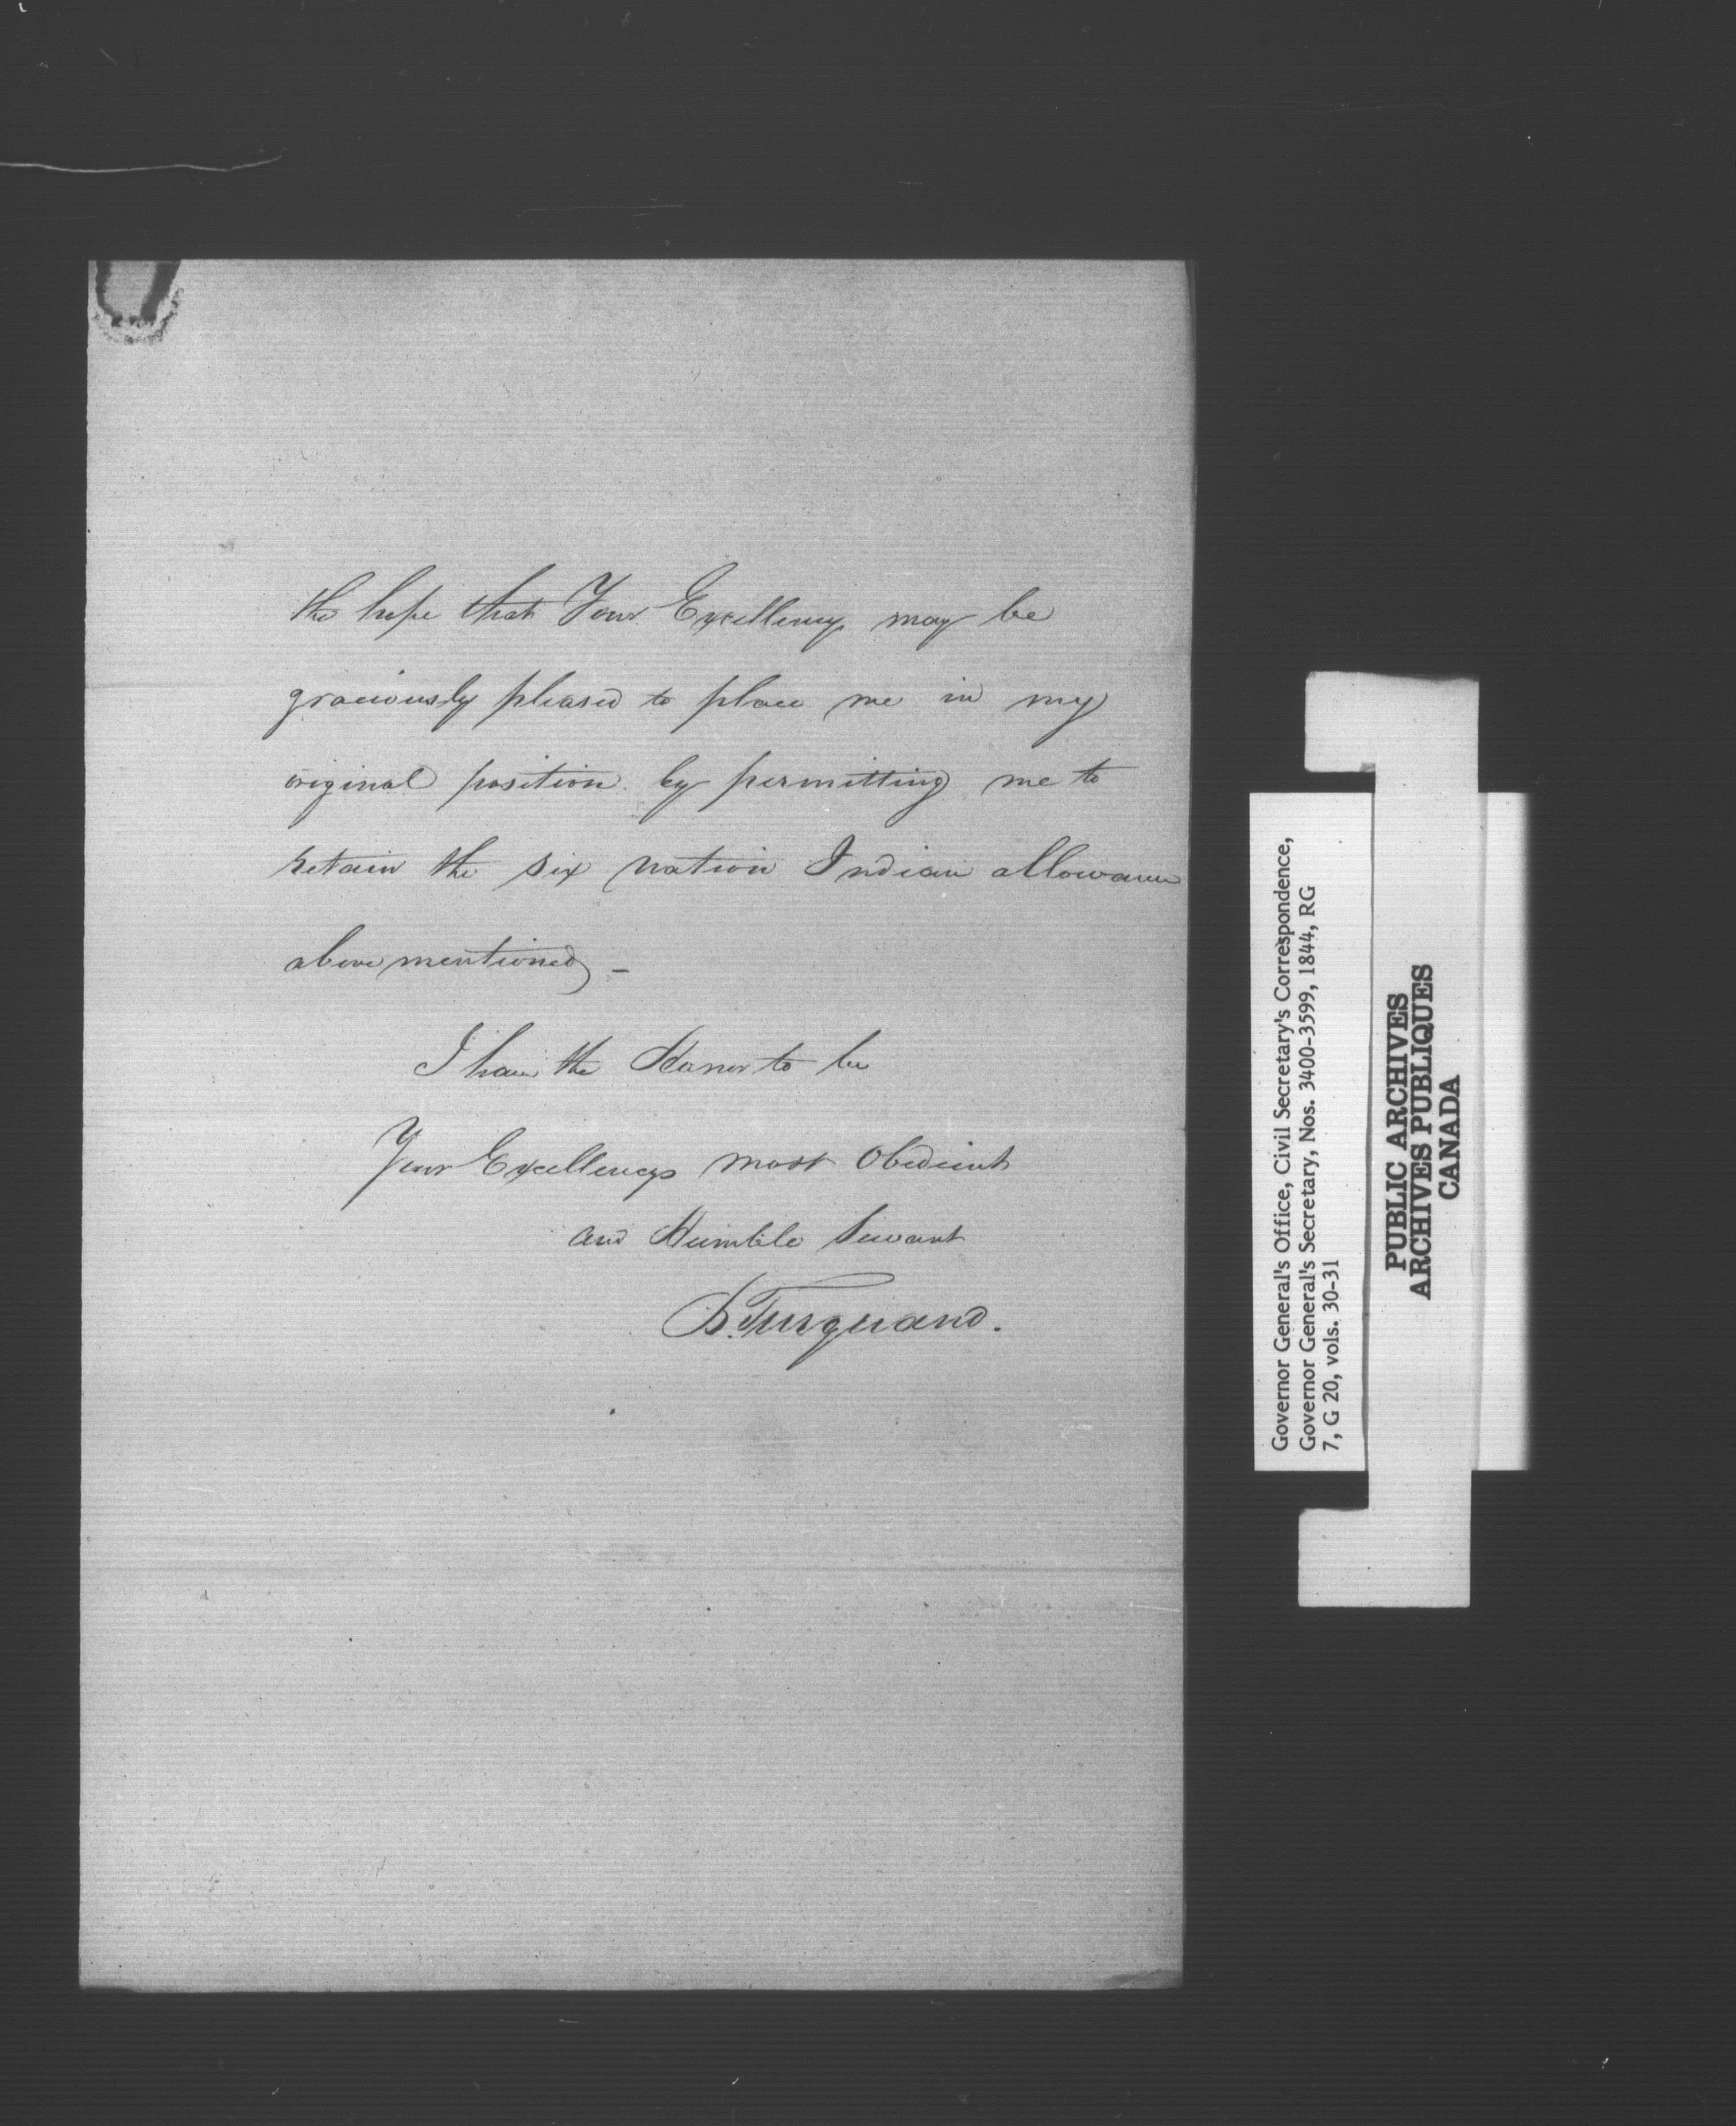 the hope that Your Excellency may be
graciously pleased to place me in my
original position by permitting me to
retain the six nation Indian allowance
above mentioned –
I have the Honor to be
Your Excellencys most Obedient
and Humble Servant
B. Turquand.
Governor General's Office, Civil Secretary's Correspondence,
Governor General's Secretary, Nos. 3400-3599, 1844, RG
7, G 20, vols. 30-31
PUBLIC ARCHIVES
ARCHIVES PUBLIQUES
CANADA